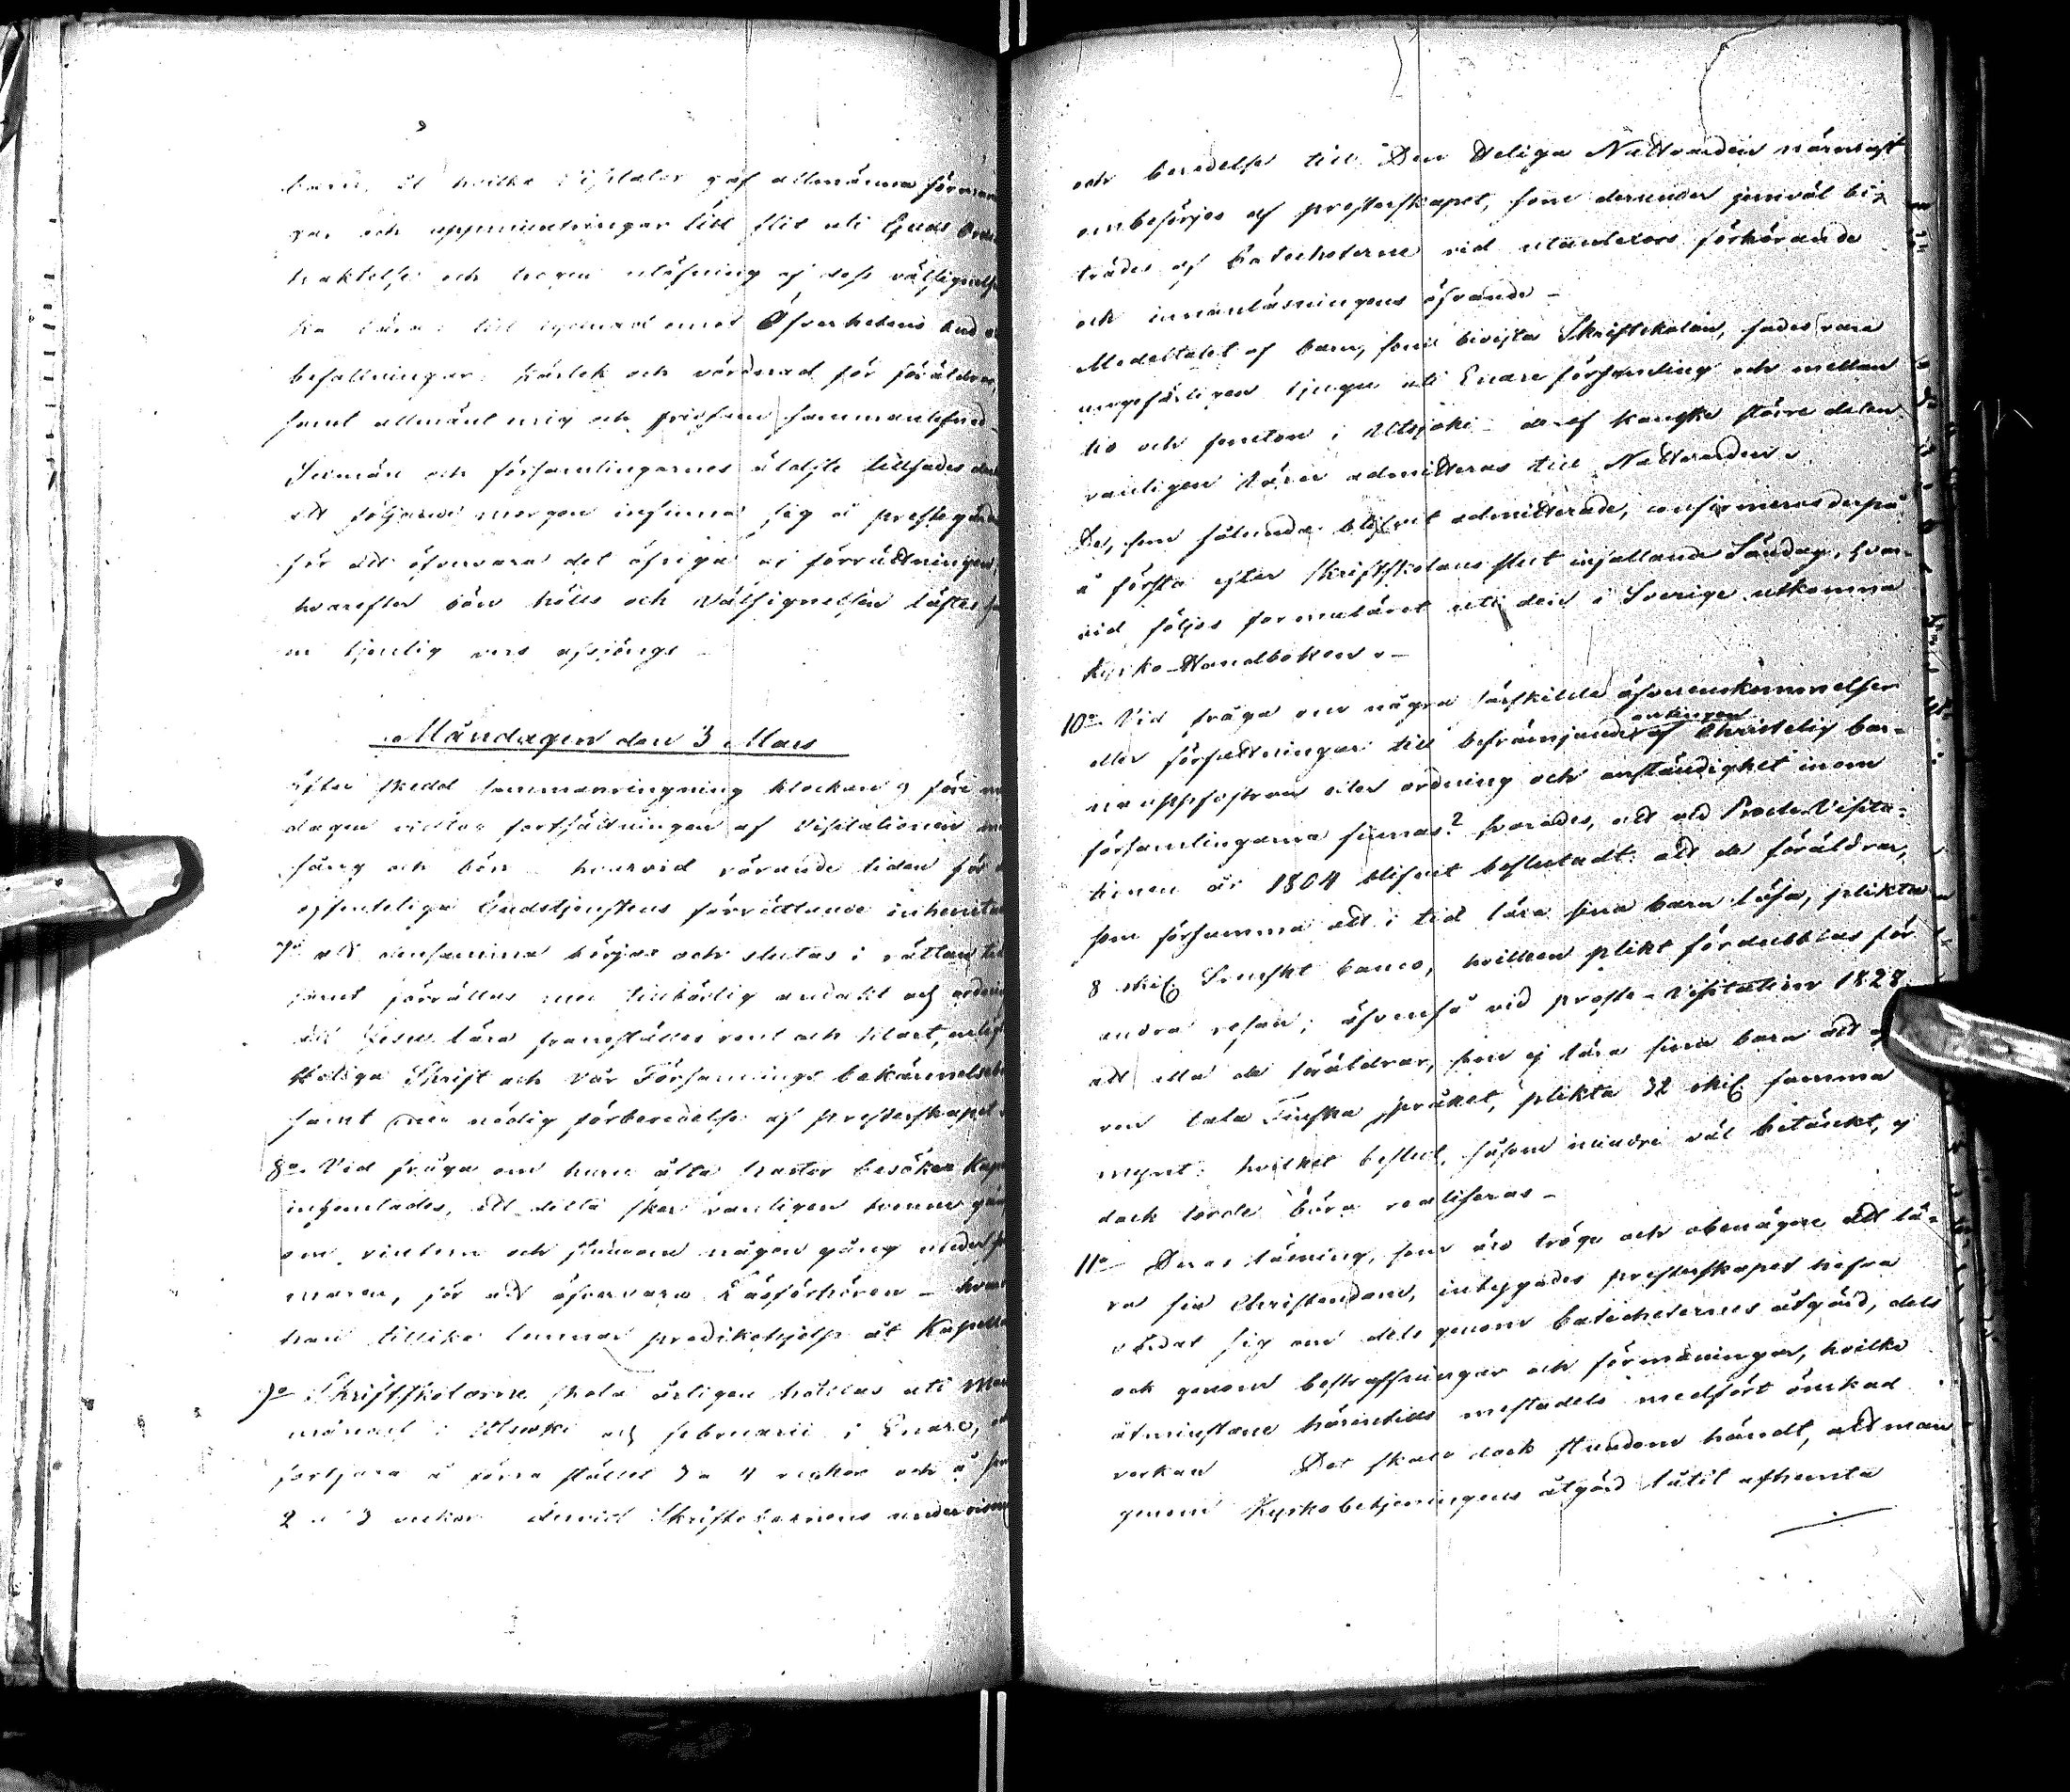 barn, åt hvilka Visitator gaf allmänna förman
gar och uppmuntringar till flit uti Guds Ords
traktelse och trogen utöfning af dess välsignelse
ka lära; till lydnad emot Öfverhetens bud o
befallningar, kärlek och vördnad för föräldrar,
samt allmänt enig och fridsam sammanlefnad_
Sexmän och församlingarnes äldste tillsades der
att följande morgon infinna sig å prestegård
för att öfvervara det öfriga af förrättningen,
hvarefter bön hölls och Välsignelsen lästes, sa
en tjenlig vers afsjöngs _
Måndagen den 3 Mars
efter skedd sammanringning klockan 9 före m
dagen vidtog fortsättningen af Visitationen m
sång och bön _ hvarvid rörande tiden för
offentliga Gudstjenstens förrättande inhemta
7o att densamma börjas och slutas i rättan tid
samt förrättas med tillbörlig andakt och ordni
att Jesu lära framställes rent och klart, enligt
Heliga Skrift och vår Församlings bekännelsebö
samt med nödig förberedelse af presterskapet.
8o Vid fråga om huru ofta Pastor besöker Kape
inhemtades, att detta sker vanligen tvenne gån
om vintern och stundom någon gång under som
maren, för att öfvervara Läsförhören _ hvar
han tillika lemnar predikohjelp åt Kapella
9o Skriftskolorne skola årligen hållas uti Mar
månad i Utsjoki och februarii i Enare, o
fortfara å förra stället 3 a 4 veckor och å sed
2 a 3 veckor dervid Skriftebarnens undervisn
och beredelse till Den Heliga Nattvarden närmast
ombesörjes af presterskapet, som derunder jemväl bi-
trädes af Catecheterne vid utanlexors förhörande
och innanläsningens öfvande _
Medeltalet af barn, som bevista Skriftskolan, sades vara
ungefärligen tjugu uti Enare församling och mellan
tio och femton i Utsjoki _ deraf kanske större delen
vanligen lärer admitteras till Nattvarden.
De, som sålunda blifvit admitterade, confirmeras derpå
å första efter skriftskolans slut infallande Söndag, hvar-
vid följes formuläret uti den i Sverige utkomna
Kyrko-Handboken. _
10o Vid fråga om några särskilda öfverenskommelser
eller författningar till befrämjande antingen af Christelig bar-
nauppfostran eller ordning och anständighet inom
församlingarna finnas? svarades, att vid Probste-Visita-
tionen år 1804 blifvit beslutadt: att de föräldrar,
som försumma att i tid lära sina barn läsa, plikta
8 skil. Svenskt banco, hvilken plikt fördubblas för
andra resan; äfvenså vid prosts-Visitation 1828
att alla de föräldrar, som ej lära sina barn att
ven tala Finska språket, plikta 32 skil. samma
mynt: hvilket beslut, såsom mindre väl betänkt, ej
dock torde böra realiseras _
11o Deras läsning, som äro tröge och obenägne att lä-
ra sin Christendom, intygades presterskapet hafva
vårdat sig om dels genom Catecheternes åtgärd, dels
ock genom bestraffningar och förmaningar, hvilka
åtminstone härintills mestadels medfört önskad
verkan Det skall dock stundom händt, att man
genom Kyrkobetjeningens åtgärd låtit afhemta